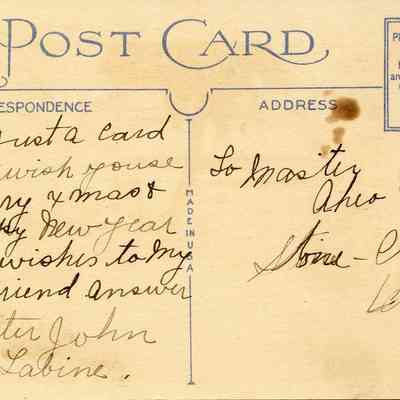 POST CARD
ESPONDENCE
ADDRESS
MADE IN U.S.A
Just a Card
wish youse
ry xmas &
New Year
wishes to My
riend answer
John
Labine.
To Master
Stone - C